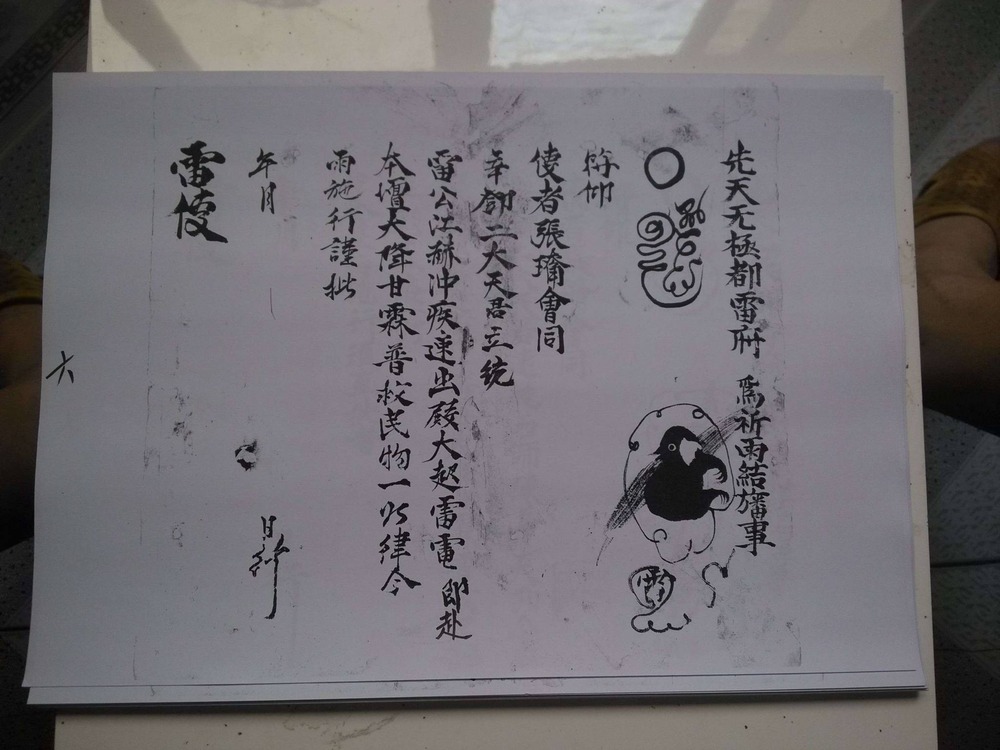 先天无極都雷府 為祈雨結旛事
符仰
使者張 會同
辛鄧二大天君立統
雷公江赫沖疾速出殿大起雷電即赴
本壇大降甘霖普救民物一如律令
雨施行謹批
年月 日行
雷使
六